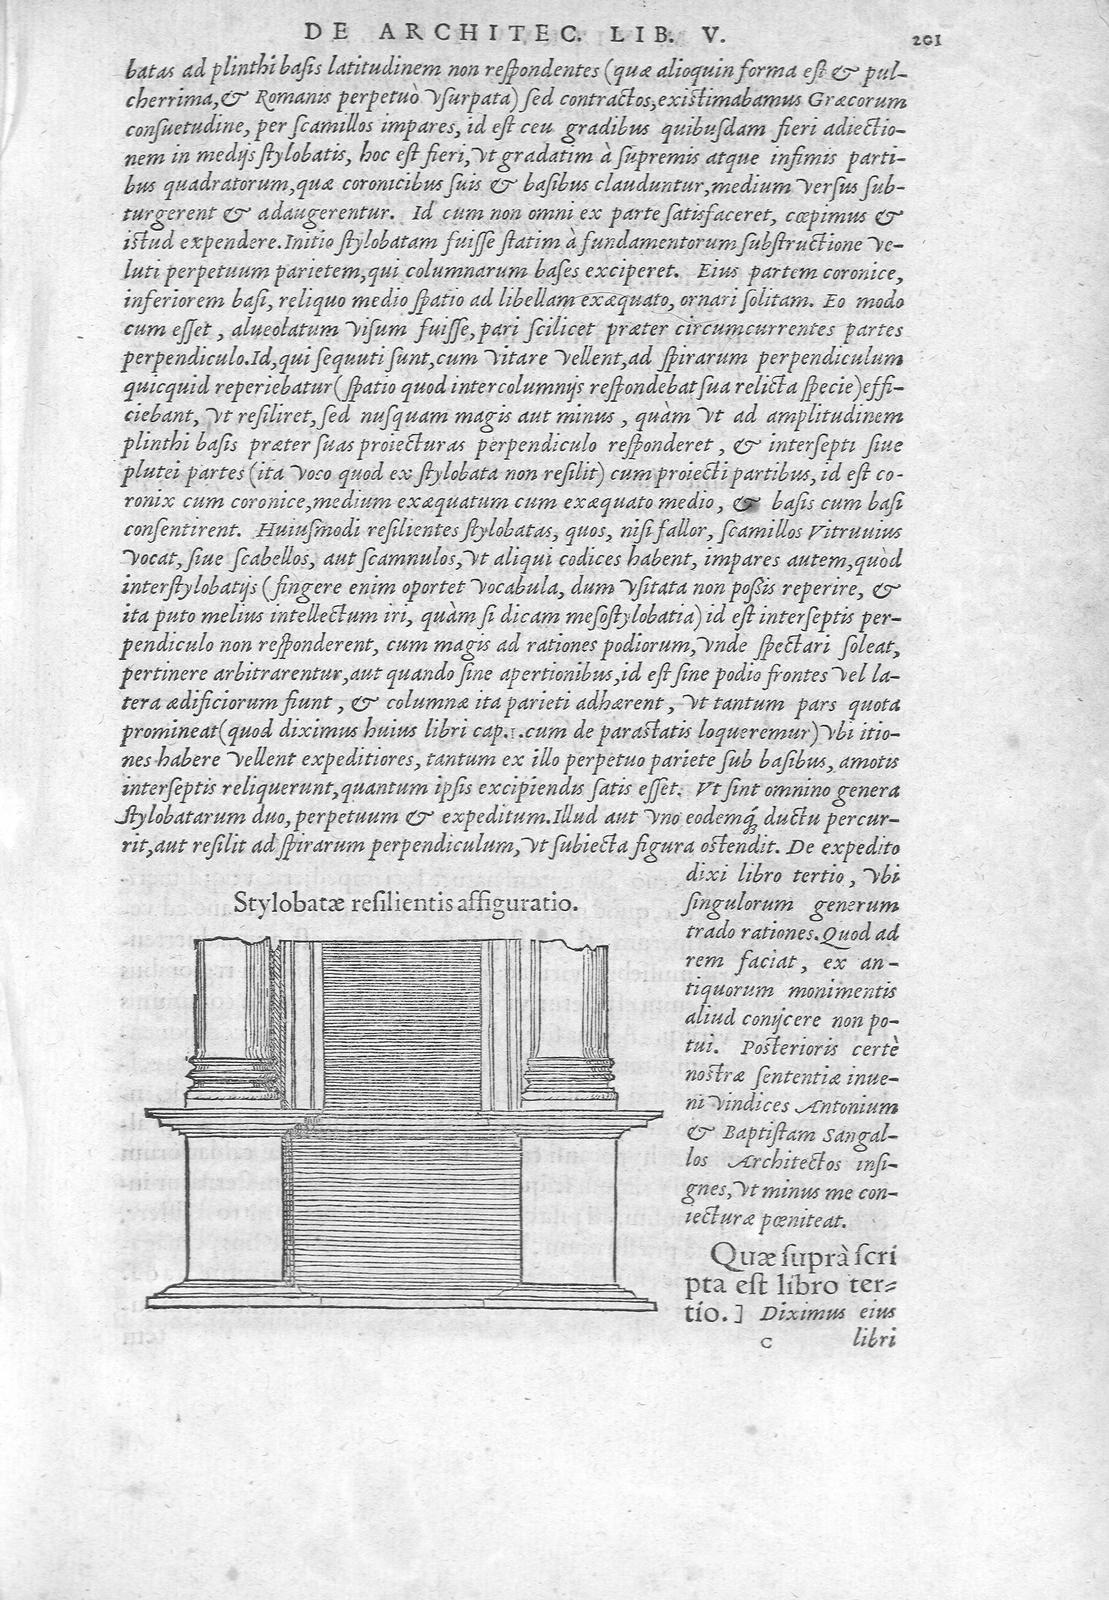 DE ARCHITEC. LIB. V. 201
batas ad plinthi basis latitudinem non respondentes (quæ alioquin forma est & pul-
cherrima, & Romanis perpetuò vsurpata) sed contractos, existimabamus Græcorum
consuetudine, per scamillos impares, id est ceu gradibus quibusdam fieri adiectio-
nem in medijs stylobatis, hoc est fieri, vt gradatim à supremis atque infimis parti-
bus quadratorum, quæ coronicibus suis & basibus clauduntur, medium versus sub-
turgerent & adaugerentur. Id cum non omni ex parte satisfaceret, cœpimus &
istud expendere. Initio stylobatam fuisse statim à fundamentorum substructione ve-
luti perpetuum parietem, qui columnarum bases exciperet. Eius partem coronice,
inferiorem basi, reliquo medio spatio ad libellam exæquato, ornari solitam. Eo modo
cum esset, alueolatum visum fuisse, pari scilicet præter circumcurrentes partes
perpendiculo. Id, qui sequuti sunt, cum vitare vellent, ad spirarum perpendiculum
quicquid reperiebatur (spatio quod intercolumnijs respondebat sua relicta specie) effi-
ciebant, vt resiliret, sed nusquam magis aut minus, quàm vt ad amplitudinem
plinthi basis præter suas proiecturas perpendiculo responderet, & intersepti siue
plutei partes (ita voco quod ex stylobata non resilit) cum proiecti partibus, id est co-
ronix cum coronice, medium exæquatum cum exæquato medio, & basis cum basi
consentirent. Huiusmodi resilientes stylobatas, quos, nisi fallor, scamillos Vitruuius
vocat, siue scabellos, aut scamnulos, vt aliqui codices habent, impares autem, quòd
interstylobatijs (fingere enim oportet vocabula, dum vsitata non possis reperire, &
ita puto melius intellectum iri, quàm si dicam mesostylobatia) id est interseptis per-
pendiculo non responderent, cum magis ad rationes podiorum, vnde spectari soleat,
pertinere arbitrarentur, aut quando sine apertionibus, id est sine podio frontes vel la-
tera ædificiorum fiunt, & columnæ ita parieti adhærent, vt tantum pars quota
promineat (quod diximus huius libri cap. 1. cum de parastatis loqueremur) vbi itio-
nes habere vellent expeditiores, tantum ex illo perpetuo pariete sub basibus, amotis
interseptis reliquerunt, quantum ipsis excipiendis satis esset. Vt sint omnino genera
stylobatarum duo, perpetuum & expeditum. Illud aut vno eodemq́; ductu percur-
rit, aut resilit ad spirarum perpendiculum, vt subiecta figura ostendit. De expedito
dixi libro tertio, vbi
singulorum generum
trado rationes. Quod ad
rem faciat, ex an-
tiquorum monimentis
aliud conijcere non po-
tui. Posterioris certè
nostræ sententiæ inue-
ni vindices Antonium
& Baptistam Sangal-
los Architectos insi-
gnes, vt minus me con-
iecturæ pœniteat.
Stylobatæ resilientis affiguratio.
Quæ suprà scri
pta est libro ter-
tio.] Diximus eius
C libri